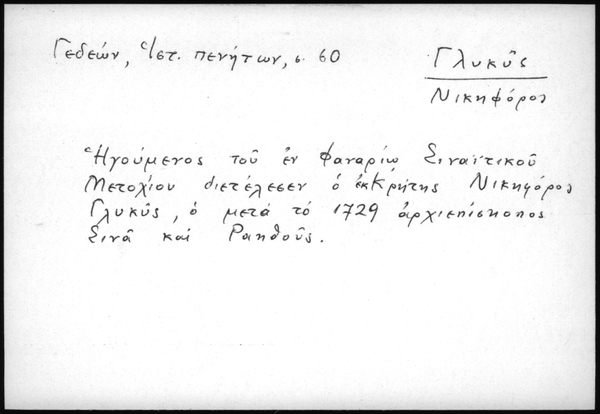 Γεδεών, Ἱστ. πενήτων, σ. 60
Γλυκῦς
Νικηφόρος
Ἡγούμενος τοῦ ἐν Φαναρίῳ Σιναϊτικοῦ
Μετοχίου διετέλεσεν ὁ ἐκ Κρήτης Νικηφόρος
Γλυκῦς, ὁ μετά τό 1729 ἀρχιεπίσκοπος
Σινᾶ καί Ραϊθοῦς.